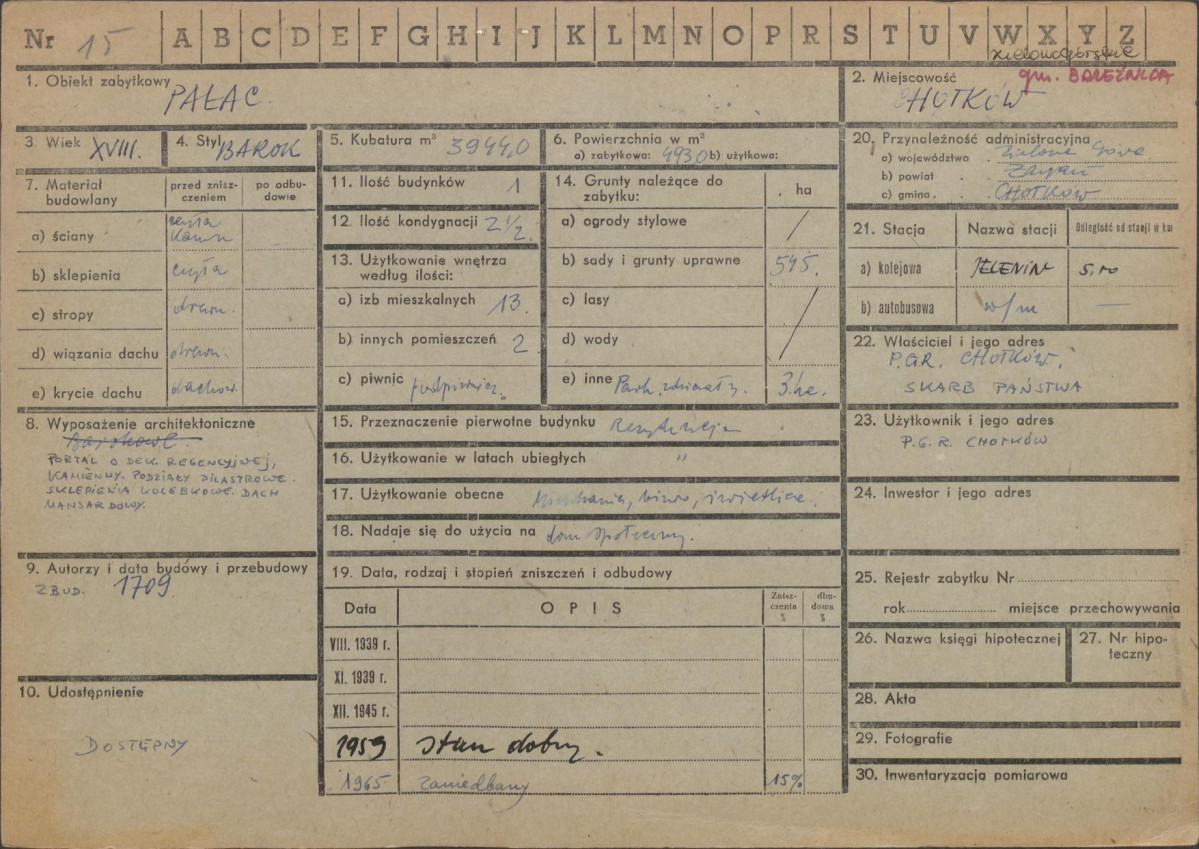 Nr 15 A B C D E F G H I J K L M N O P R S T U V W X Y Z
zielonogórskie
1. Obiekt zabytkowy
PAŁAC
2. Miejscowość gm. BRZEŹNICA
CHOTKÓW
3. Wiek XVIII.
4. Styl BAROK
5. Kubatura m³ 3944,0
6. Powierzchnia w m²
a) zabytkowa: 493,0 b) użytkowa:
20. Przynależność administracyjna
a) województwo Zielona Góra
b) powiat Żagań
c) gmina CHOTKÓW
7. Materiał budowlany
przed zniszczeniem
po odbudowie
a) ściany cegła
kamień
b) sklepienia cegła
c) stropy drewn.
d) wiązania dachu drewn.
e) krycie dachu dachow.
11. Ilość budynków 1
12. Ilość kondygnacji 2 1/2.
13. Użytkowanie wnętrza
według ilości:
a) izb mieszkalnych 13.
b) innych pomieszczeń 2.
c) piwnic podpiwnicz.
14. Grunty należące do
zabytku:
ha
a) ogrody stylowe /
b) sady i grunty uprawne 545.
c) lasy /
d) wody
e) inne Park, zdziczały. 3 ha.
21. Stacja
Nazwa stacji
Odległość od stacji w km
a) kolejowa JELENIN 5,00
b) autobusowa w/m —
22. Właściciel i jego adres
P.G.R. CHOTKÓW.
SKARB PAŃSTWA
8. Wyposażenie architektoniczne
Barokowe.
PORTAL O DEK. REGENCYJNEJ,
KAMIENNY. PODZIAŁY PILASTROWE.
SKLEPIENIA KOLEBKOWE. DACH
MANSARDOWY.
15. Przeznaczenie pierwotne budynku Rezydencja
16. Użytkowanie w latach ubiegłych "
17. Użytkowanie obecne Mieszkania, biuro, świetlica.
18. Nadaje się do użycia na dom społeczny.
23. Użytkownik i jego adres
P.G.R. CHOTKÓW
24. Inwestor i jego adres
9. Autorzy i data budówy i przebudowy
ZBUD. 1709.
19. Data, rodzaj i stopień zniszczeń i odbudowy
Data
OPIS
Zniszczenia %
dbudowa %
VIII. 1939 r.
XI. 1939 r.
XII. 1945 r.
1959 Stan dobry.
1965 zaniedbany 15%
10. Udostępnienie
DOSTĘPNY
25. Rejestr zabytku Nr
rok miejsce przechowywania
26. Nazwa księgi hipotecznej
27. Nr hipoteczny
28. Akta
29. Fotografie
30. Inwentaryzacja pomiarowa